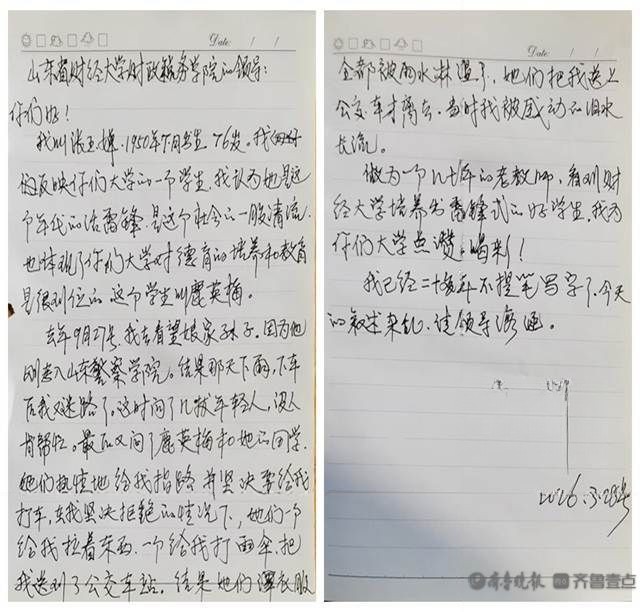 Date: / /
山东省财经大学财政税务学院的领导:
你们好!
我叫张玉婵.1950年7月出生 76岁。我
的反映你们大学的一个学生.我认为她是这
个年代的活雷锋.是这个社会的一股清流.
也体现了你们大学对德育的培养和教育
是很到位的.这个学生叫鹿英梅。
去年9月27号.我去看望娘家孙子。因为他
刚进入山东警察学院。结果那天下雨,下车
后我又迷路了。这时问了几拨年轻人,没人
肯帮忙。最后又问了鹿英梅和她的同学.
她们热情地给我指路并坚决要给我
打车,在我坚决拒绝的情况下,她们一个
给我拉着东西.一个给我打雨伞.把
我送到了公交车站。结果她们浑衣服
Date: / /
全部被雨水淋湿了,她们把我送上
公交车才离去.当时我被感动的泪水
长流。
做为一个几十年的老教师,看到财
经大学培养出雷锋式的好学生.我为
你们大学点赞、喝来了!
我已经二十多年不提笔写字了.今天
的叙述杂乱.请领导海涵。
2026.3.28号
齐鲁晚报 齐鲁壹点